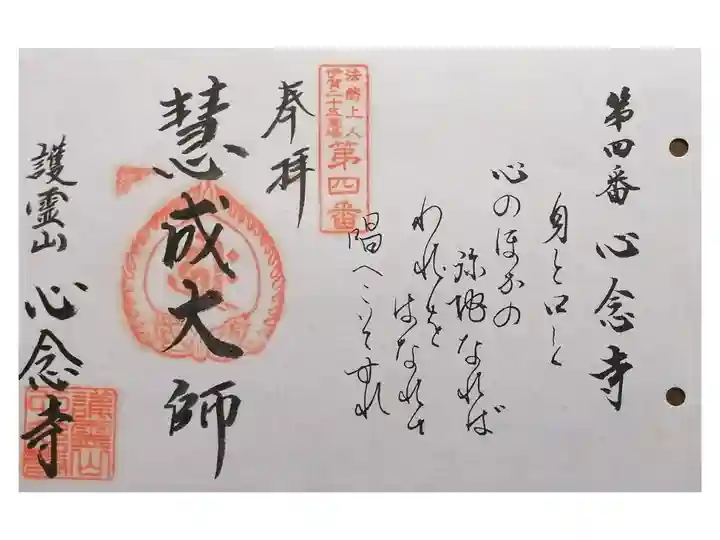 第四番 心念寺
身と口と
心のほかの
弥陀なれば
われをはなれて
唱へこそすれ
法然上人
伊賀二十五霊場
第四番
奉拝
慧成大師
護霊山 心念寺
護霊山